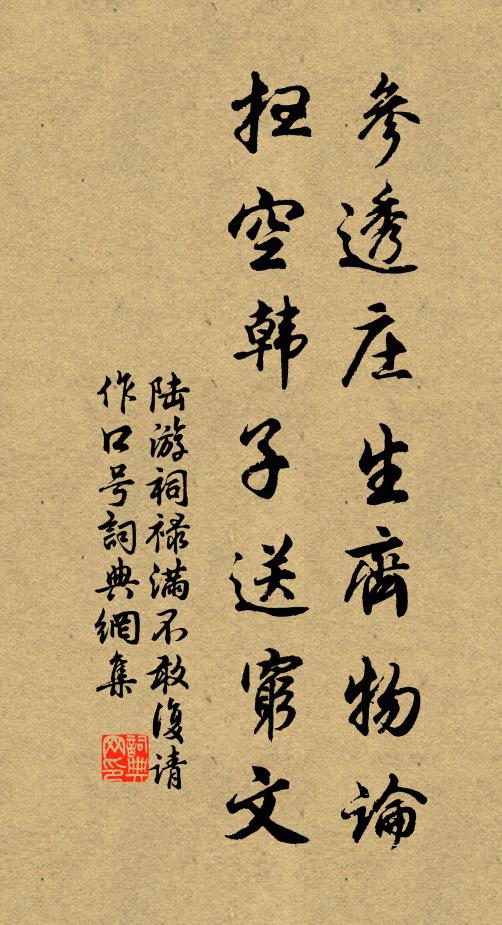 参透庄生齊物論
扫空韩子送窮文
陆游祠禄满不敢復请
作口号詞典網集
詞典
网印